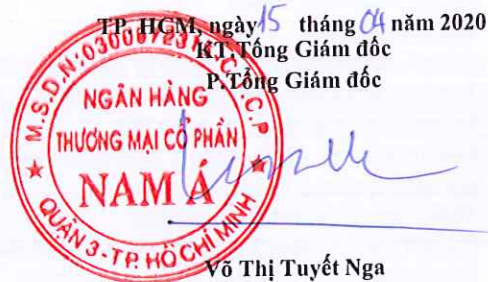 TP. HCM, ngày 15 tháng 04 năm 2020
KT.Tổng Giám đốc
P.Tổng Giám đốc
NGÂN HÀNG
THƯƠNG MẠI CỔ PHẦN
NAM Á
QUẬN 3-T.P. HỒ CHÍ MINH
Võ Thị Tuyết Nga